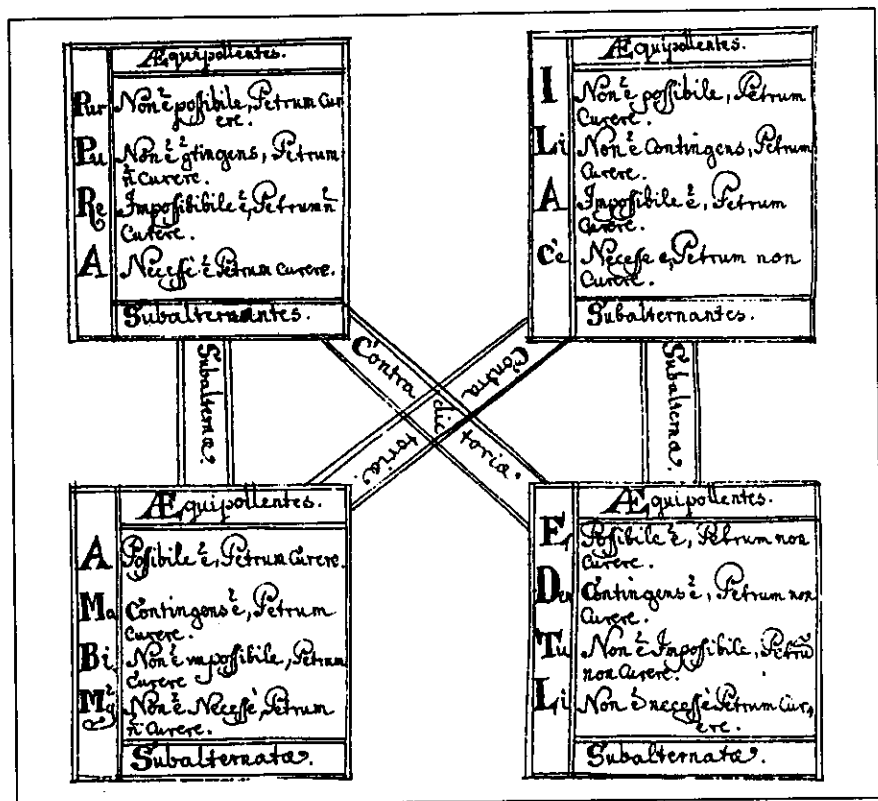 Æquipollentes.
Pur Non è possibile, Petrum Cur
ere.
Pu Non è gtingens, Petrum
ñ Curere.
Re Impossibibile è, Petrum ñ
Curere.
A Necesse è Petrum Curere.
Subalternantes.
Æquipollentes.
I Non è possibile, Petrum
Curere.
Li Non è Contingens, Petrum
Curere.
A Impossibile è, Petrum
Curere.
Ce Necesse e, Petrum non
Curere.
Subalternantes.
Subalterna.
Contra
dic
toria.
Contra
toria.
Subalterna.
Æquipollentes.
A Possibile è, Petrum Curere.
Ma Contingens è, Petrum
Curere.
Bi Non è mpossibile, Petrum
Curere
Non è Necesse, Petrum
ñ Curere.
Subalternatæ.
Æquipollentes.
E Possibile è, Petrum non
Curere.
Den Contingens è, Petrum non
Curere.
Tu Non è Impossibile, Petrũ
non Curere.
Li Non è necesse Petrum Cur,
ere.
Subalternatæ.